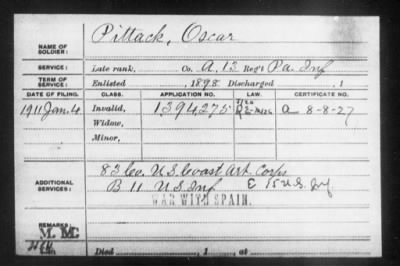 NAME OF SOLDIER: Pittack, Oscar
SERVICE: Late rank, Co. A, 13 Reg't Pa. Inf
TERM OF SERVICE: Enlisted 1898 Discharged , 1
DATE OF FILING. CLASS. APPLICATION NO. LAW. CERTIFICATE NO.
1911 Jan. 4 Invalid, 1394275 a 8-8-27
Widow,
Minor,
ADDITIONAL SERVICES: 83 Co. U.S. Coast Art. Corps
B 11 U.S. Inf E 15 U.S. Inf
WAR WITH SPAIN.
REMARKS: M. M.
Died , 1 , at